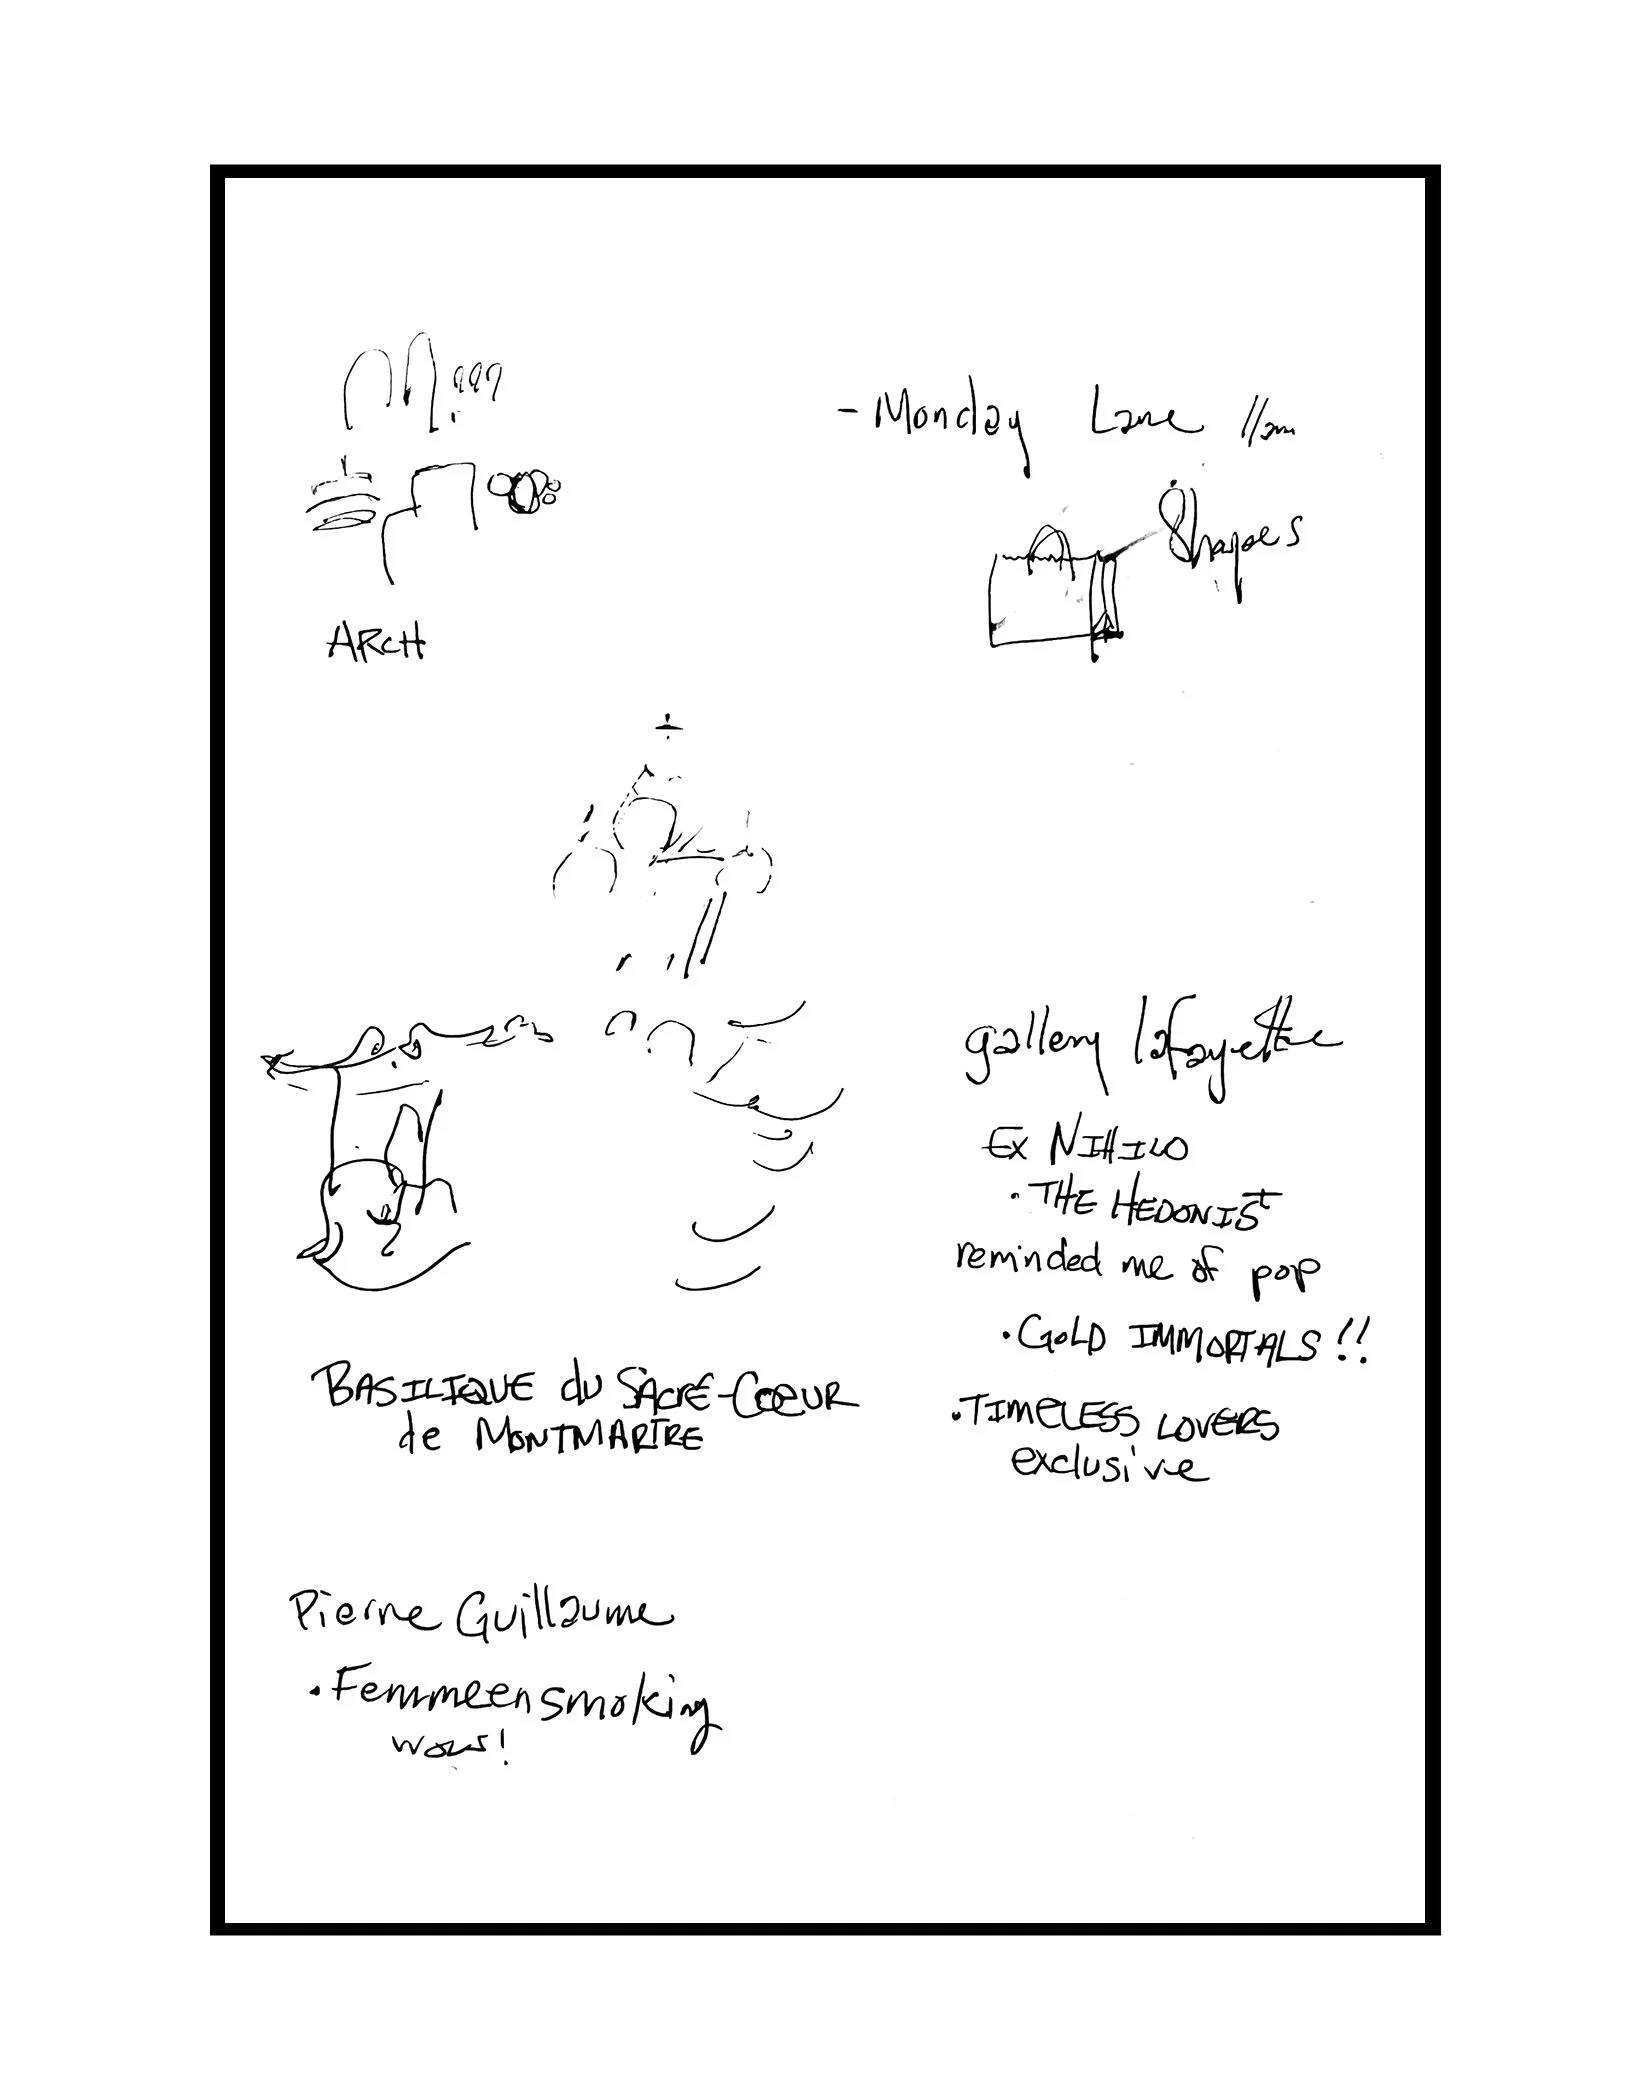 - Monday Lane 11am
Shapes
ARCH
gallery lafayette
Ex NIHILO
• THE HEDONIST
reminded me of pop
• GOLD IMMORTALS!!
• TIMELESS LOVERS
exclusive
BASILIQUE du SACRÉ-COEUR
de MONTMARTRE
Pierre Guillaume
• Femmeensmoking
wow!